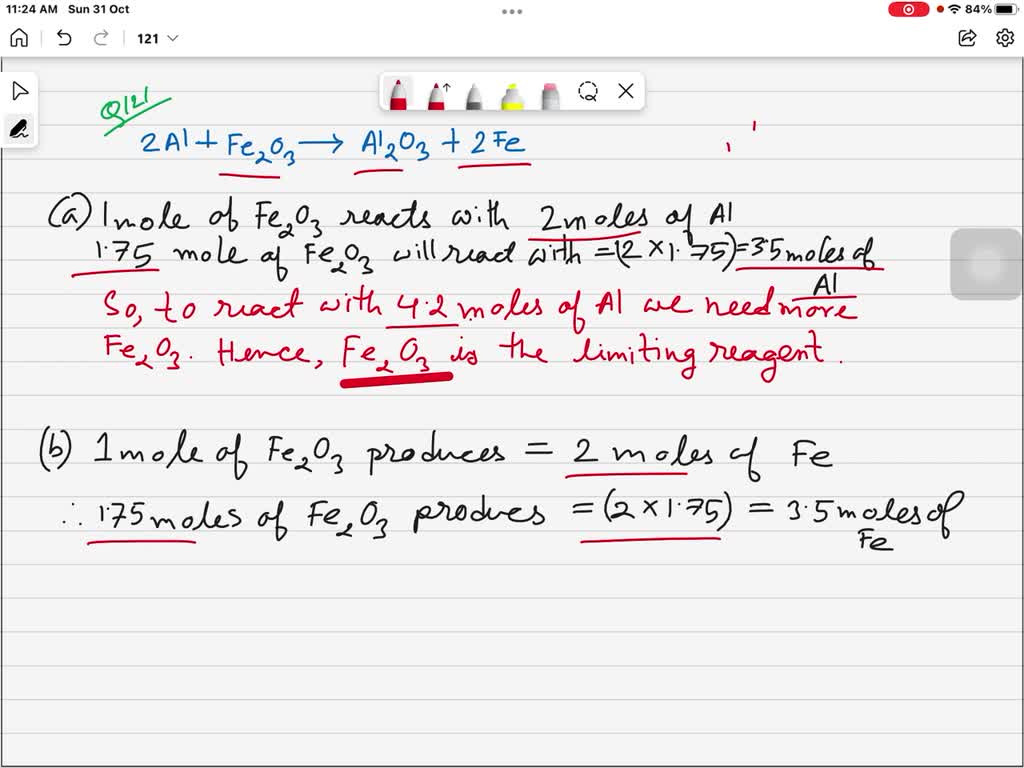 11:24 AM Sun 31 Oct
84%
121
Q121
2Al + Fe₂O₃ → Al₂O₃ + 2Fe
(a) 1mole of Fe₂O₃ reacts with 2moles of Al
1.75 mole of Fe₂O₃ will react with =(2×1.75)=3.5moles of
Al
So, to react with 4.2 moles of Al we need more
Fe₂O₃. Hence, Fe₂O₃ is the limiting reagent.
(b) 1mole of Fe₂O₃ produces = 2 moles of Fe
∴ 1.75moles of Fe₂O₃ produes = (2×1.75) = 3.5moles of
Fe